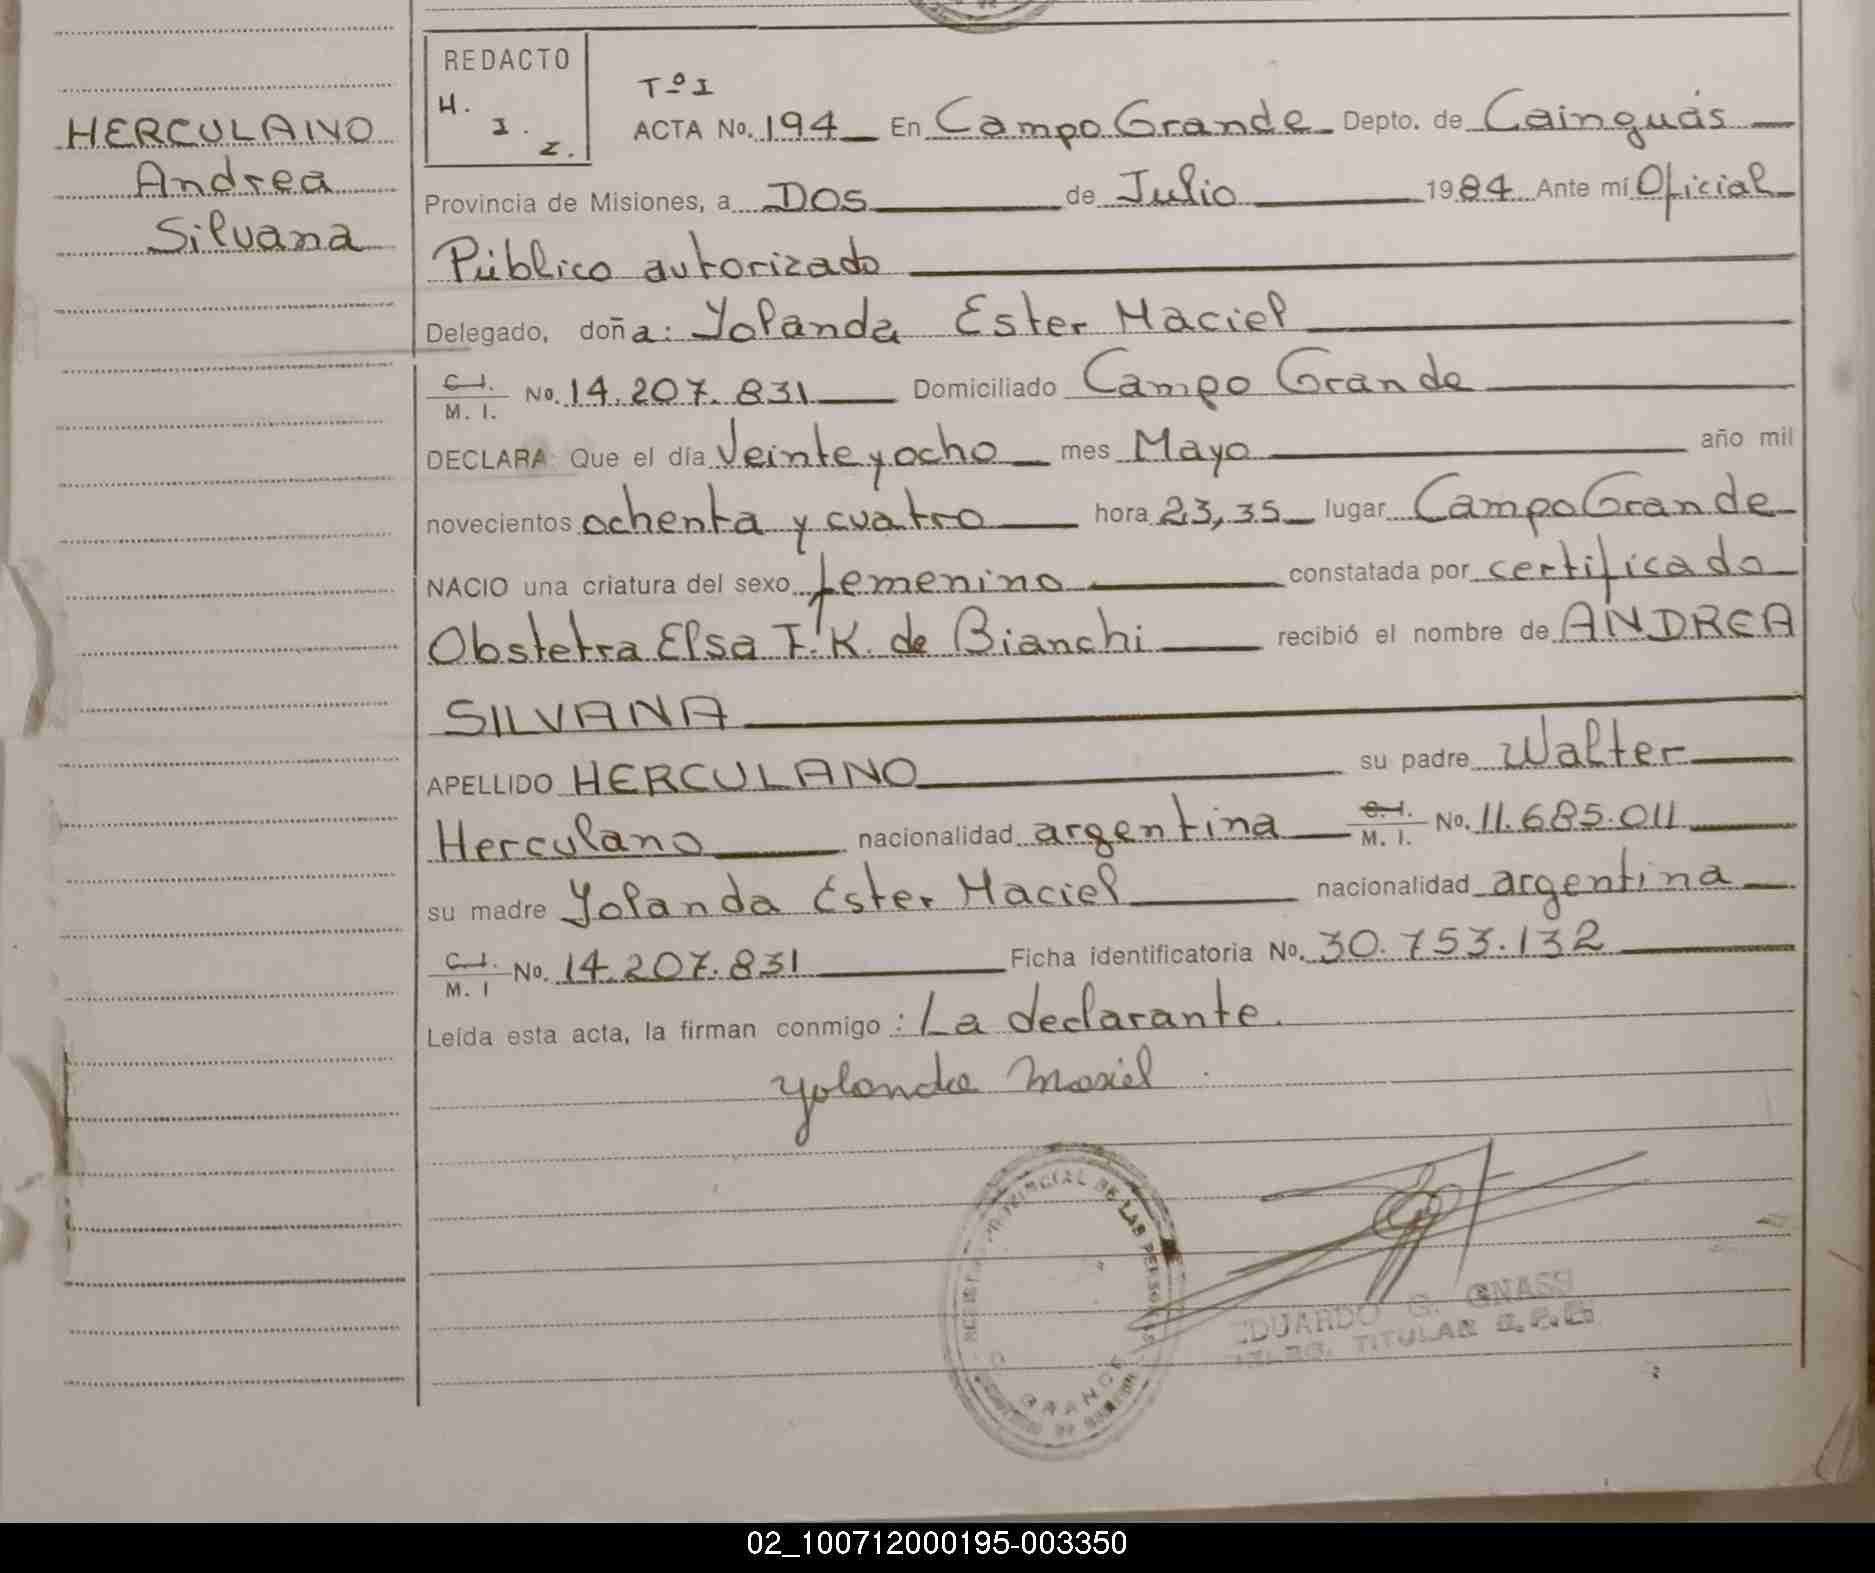 HERCULANO
Andrea
Silvana
REDACTO
H.
I.
Z.
Tº I
ACTA No. 194 En Campo Grande Depto. de Cainguás
Provincia de Misiones, a Dos de Julio 1984 Ante mí Oficial
Público autorizado
Delegado, doña: Yolanda Ester Maciel
C.I. M. I. No. 14.207.831 Domiciliado Campo Grande
DECLARA Que el día Veinte y ocho mes Mayo año mil
novecientos ochenta y cuatro hora 23,35 lugar Campo Grande
NACIO una criatura del sexo femenino constatada por certificado
Obstetra Elsa F. K. de Bianchi recibió el nombre de ANDREA
SILVANA
APELLIDO HERCULANO su padre Walter
Herculano nacionalidad argentina C.I. M. I. No. 11.685.011
su madre Yolanda Ester Maciel nacionalidad argentina
C.I. M. I No. 14.207.831 Ficha identificatoria No. 30.753.132
Leída esta acta, la firman conmigo: La declarante.
Yolanda Maciel
PROVINCIAL DE LAS PERSONAS
GRANDE
EDUARDO G. GNASS
TITULAR
02_100712000195-003350